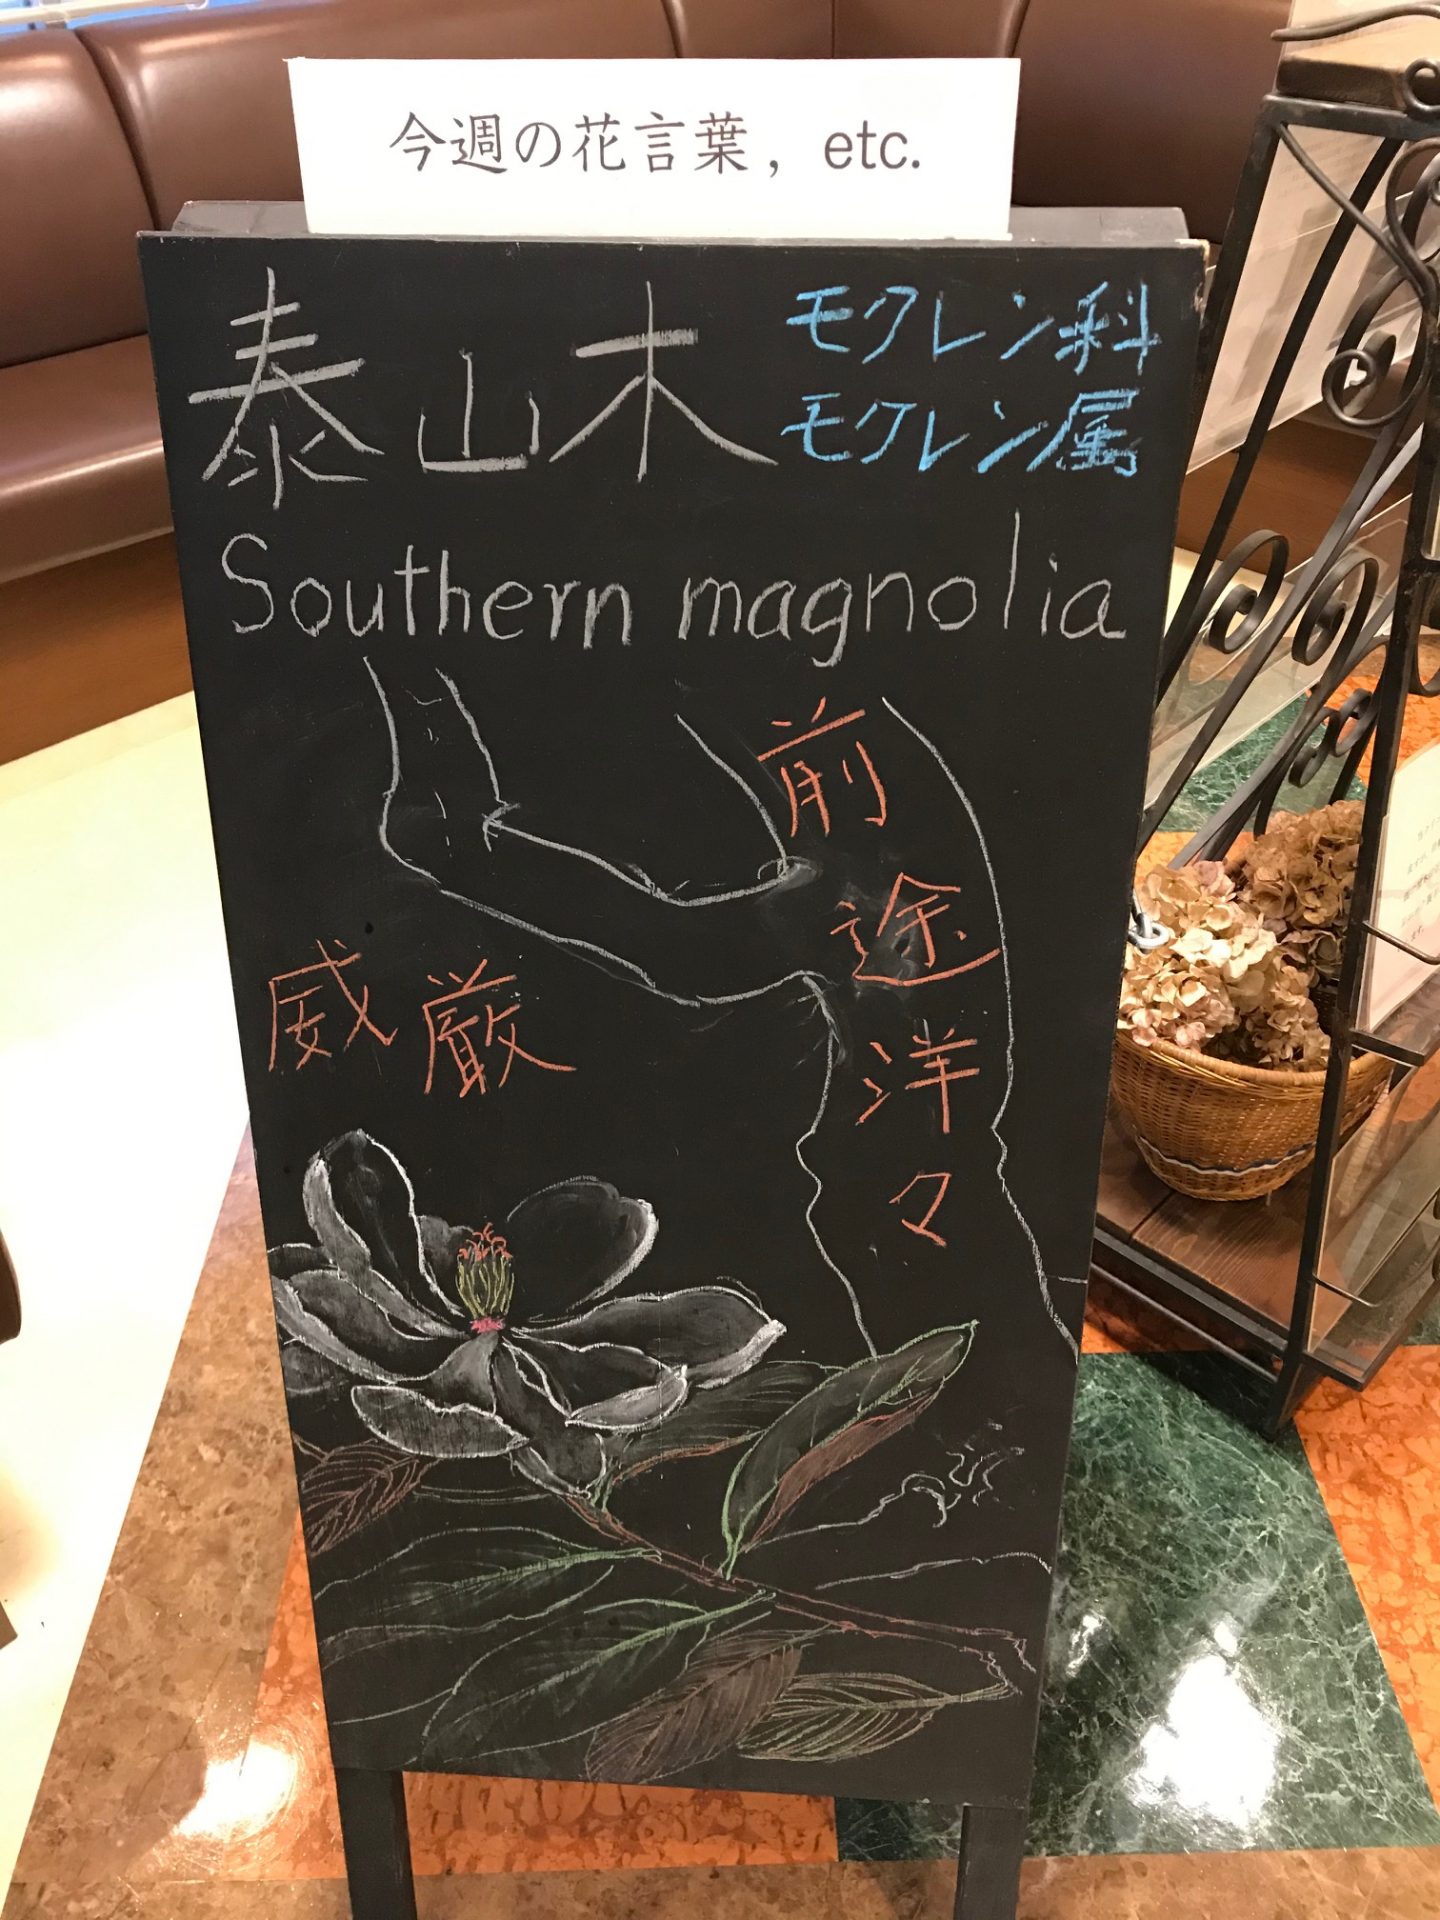 今週の花言葉，etc.
泰山木
モクレン科
モクレン属
Southern magnolia
前途洋々
威厳